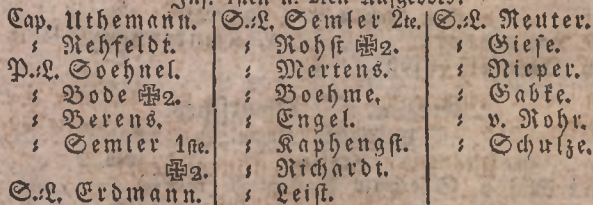 Cap. Uthemann.
⸗ Rehfeldt.
P.⸗L. Soehnel.
⸗ Bode ✠2.
⸗ Berens.
⸗ Semler 1ste.
✠2.
S.⸗L. Erdmann.
S.⸗L. Semler 2te.
⸗ Rohst ✠2.
⸗ Mertens.
⸗ Boehme.
⸗ Engel.
⸗ Kaphengst.
⸗ Richardt.
⸗ Leist.
S.⸗L. Reuter.
⸗ Giese.
⸗ Nieper.
⸗ Gabke.
⸗ v. Rohr.
⸗ Schulze.